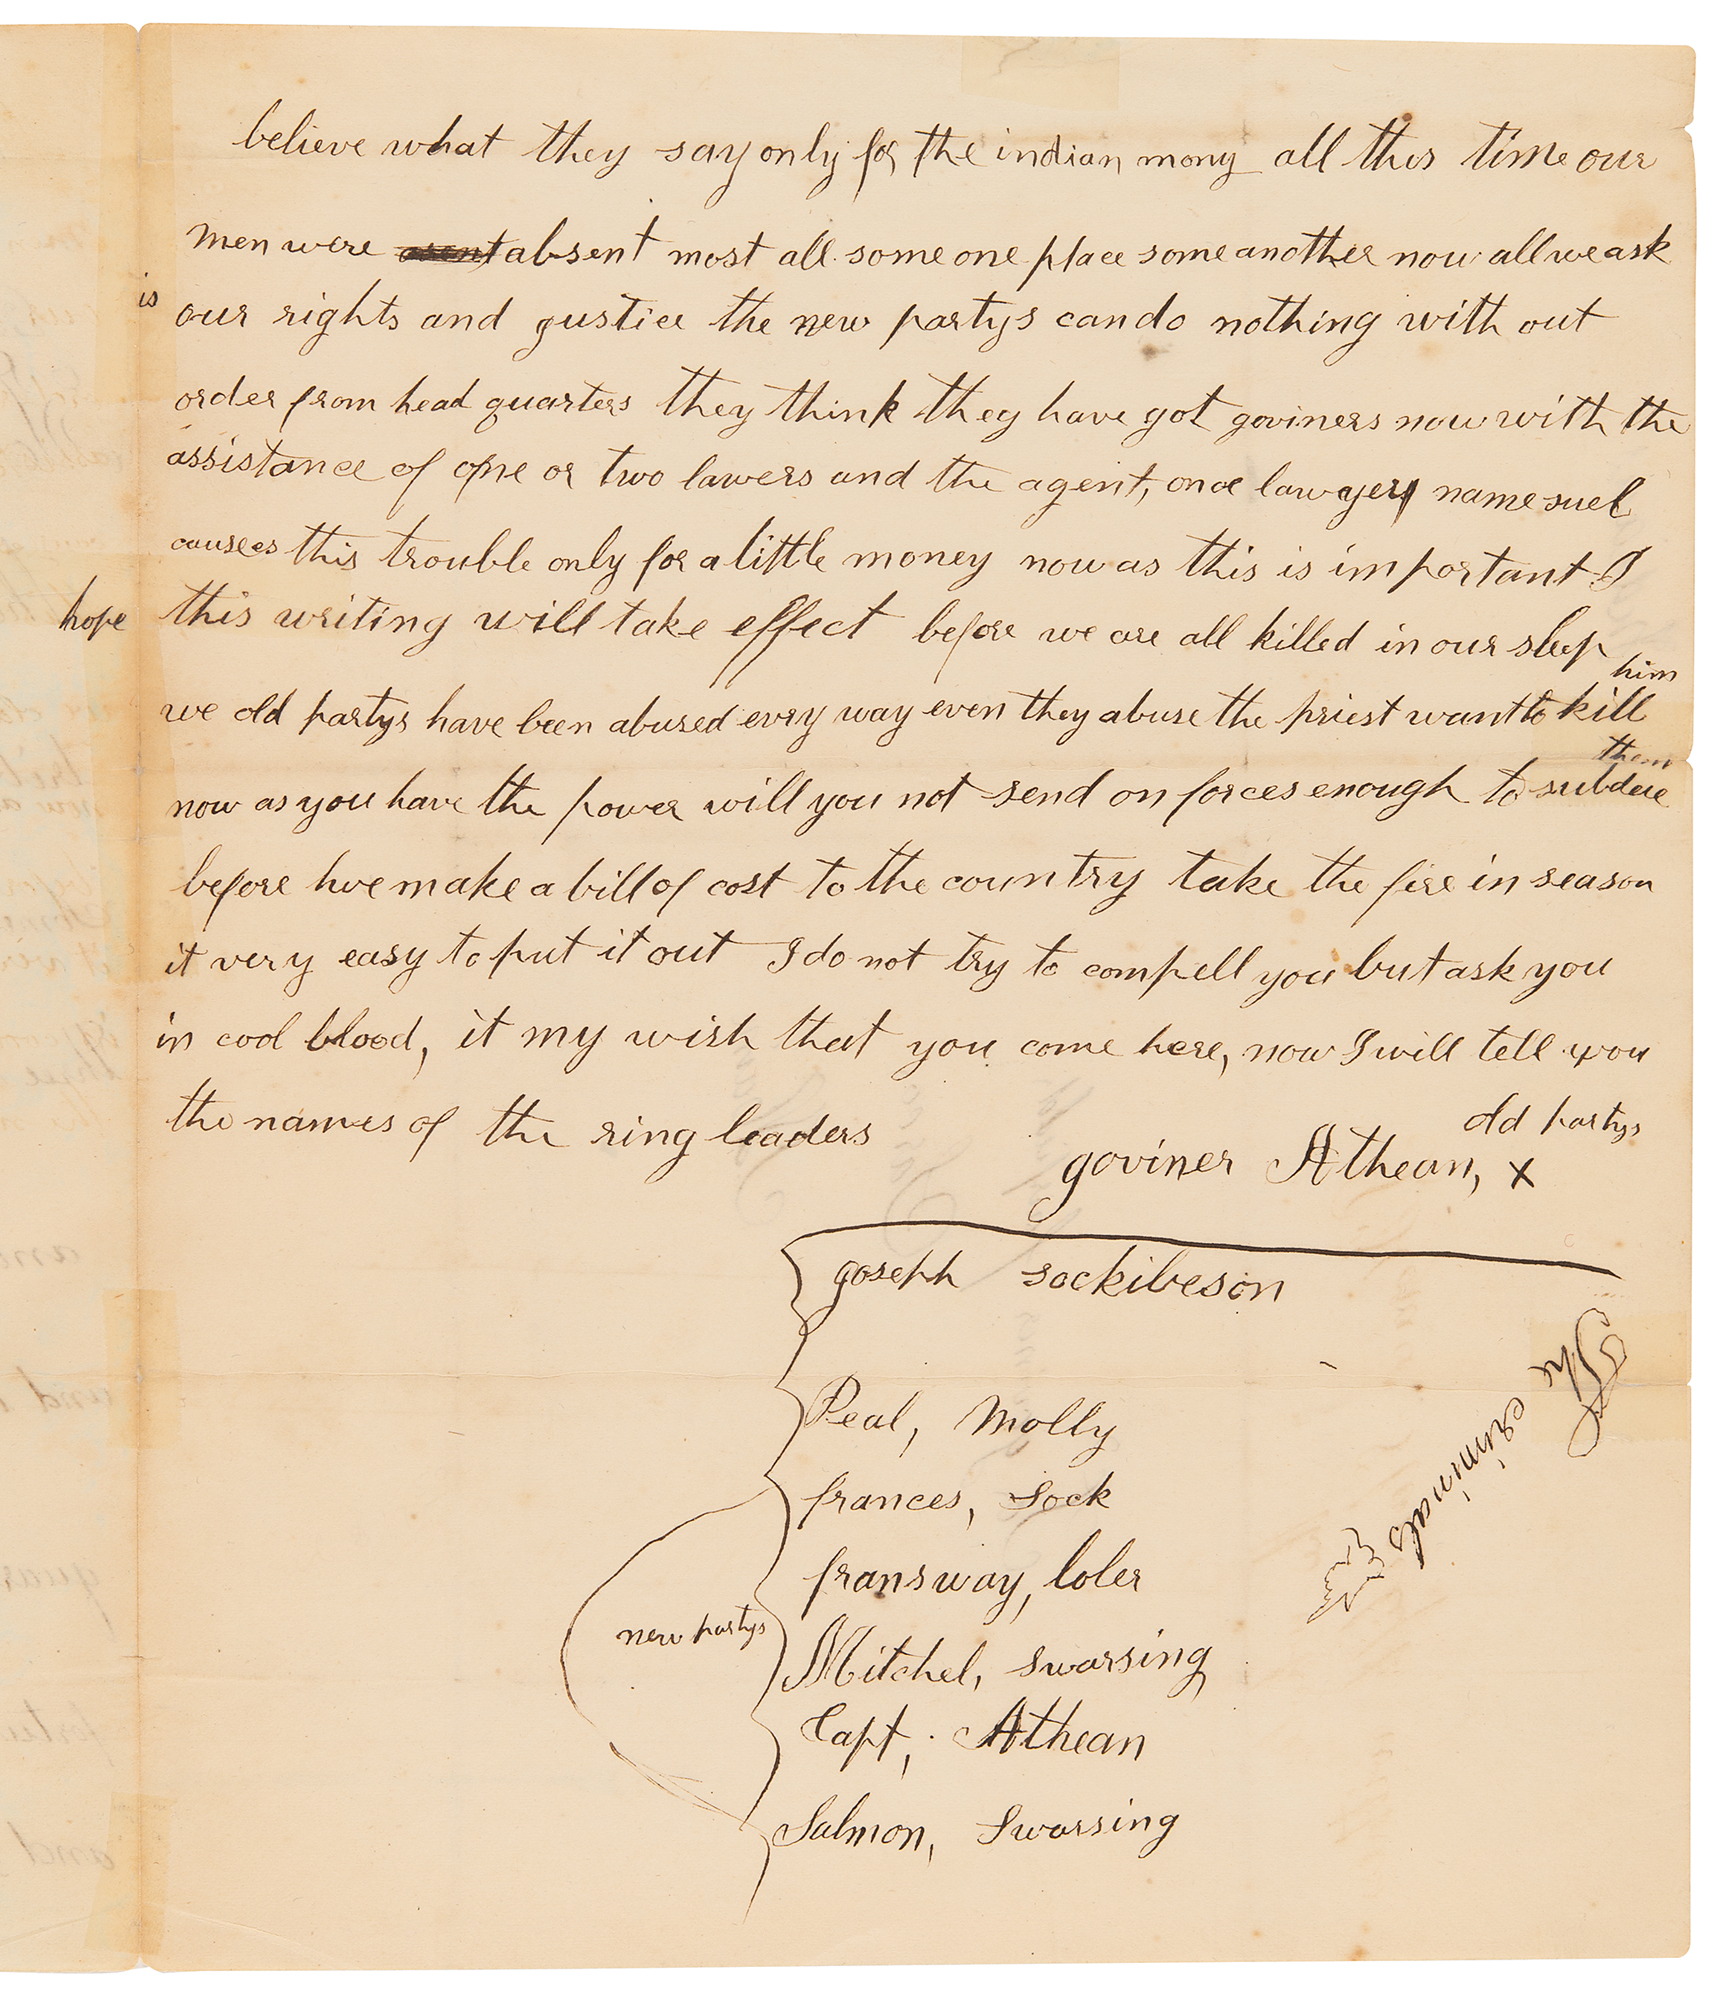 believe what they say only for the indian mony all this time our
men were absent most all some one place some another now all we ask
is our rights and gustice the new partys can do nothing with out
order from head quarters they think they have got goviners now with the
assistance of one or two lawers and the agent, once lawyer name suel
causees this trouble only for a little money now as this is important I
hope this writing will take effect before we are all killed in our sleep
him
we old partys have been abused evry way even they abuse the priest want to kill
them
now as you have the power will you not send on forces enough to subdue
before hwe make a bill of cost to the country take the fire in season
it very easy to put it out I do not try to compell you but ask you
in cool blood, it my wish that you come here, now I will tell you
the names of the ring leaders
old partys
goviner Athean, x
goseph sockibeson
Peal, Molly
frances, Sock
fransway, loler
new partys
Mitchel, swarsing
Capt, Athean
Salmon, Swarsing
The criminals